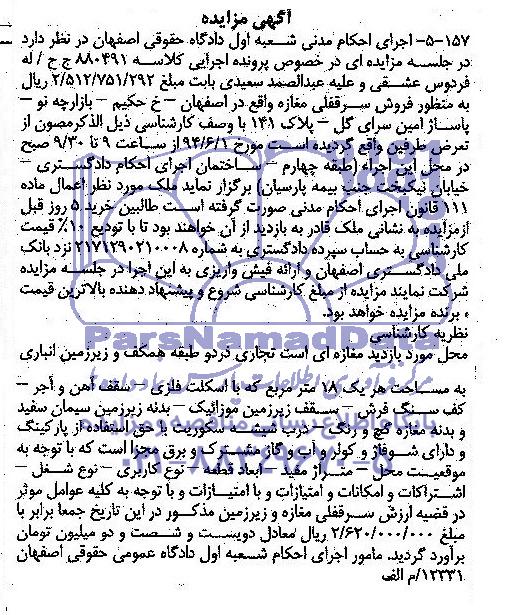 آگهی مزایده
۱۵۷-۵- اجرای احکام مدنی شعبه اول دادگاه حقوقی اصفهان در نظر دارد
در جلسه مزایده ای در خصوص پرونده اجرایی کلاسه ۸۸۰۴۹۱ ج ح / له
فردوس عشقی و علیه عبدالصمد سعیدی بابت مبلغ ۲/۵۱۲/۷۵۱/۲۹۲ ریال
به منظور فروش سرقفلی مغازه واقع در اصفهان – خ حکیم – بازارچه نو –
پاساژ امین سرای گل – پلاک ۱۴۱ با وصف کارشناسی ذیل الذکرمصون از
تعرض طرفین واقع گردیده است مورخ ۹۴/۶/۱ از ساعت ۹ تا ۹/۳۰ صبح
در محل این اجراء (طبقه چهارم – ساختمان اجرای احکام دادگستری –
خیابان نیکبخت جنب بیمه پارسیان) برگزار نماید ملک مورد نظر اعمال ماده
۱۱۱ قانون اجرای احکام مدنی صورت گرفته است طالبین خرید ۵ روز قبل
ازمزایده به نشانی ملک قادر به بازدید از آن خواهند بود تا با تودیع ۱۰٪ قیمت
کارشناسی به حساب سپرده دادگستری به شماره ۲۱۷۱۲۹۰۲۱۰۰۰۸ نزد بانک
ملی دادگستری اصفهان و ارائه فیش واریزی به این اجرا در جلسه مزایده
شرکت نمایند مزایده از مبلغ کارشناسی شروع و پیشنهاد دهنده بالاترین قیمت
، برنده مزایده خواهد بود.
نظریه کارشناسی
محل مورد بازدید مغازه ای است تجاری دردو طبقه همکف و زیرزمین انباری
به مساحت هر یک ۱۸ متر مربع که با اسکلت فلزی – سقف آهن و آجر –
کف سنگ فرش – سقف زیرزمین موزائیک – بدنه زیرزمین سیمان سفید
و بدنه مغازه گچ و رنگ – درب شیشه سکوریت با حق استفاده از پارکینگ
و دارای شوفاژ و کولر و آب و گاز مشترک و برق مجزا است که با توجه به
موقعیت محل – متراژ مفید – ابعاد قطعه – نوع کاربری – نوع شغل –
اشتراکات و امکانات و امتیازات و با امتیازات و با توجه به کلیه عوامل موثر
در قضیه ارزش سرقفلی مغازه و زیرزمین مذکور در این تاریخ جمعا برابر با
مبلغ ۲/۶۲۰/۰۰۰/۰۰۰ ریال معادل دویست و شصت و دو میلیون تومان
برآورد گردید. مامور اجرای احکام شعبه اول دادگاه عمومی حقوقی اصفهان
۱۲۳۳۱/م الف
ParsNamadData